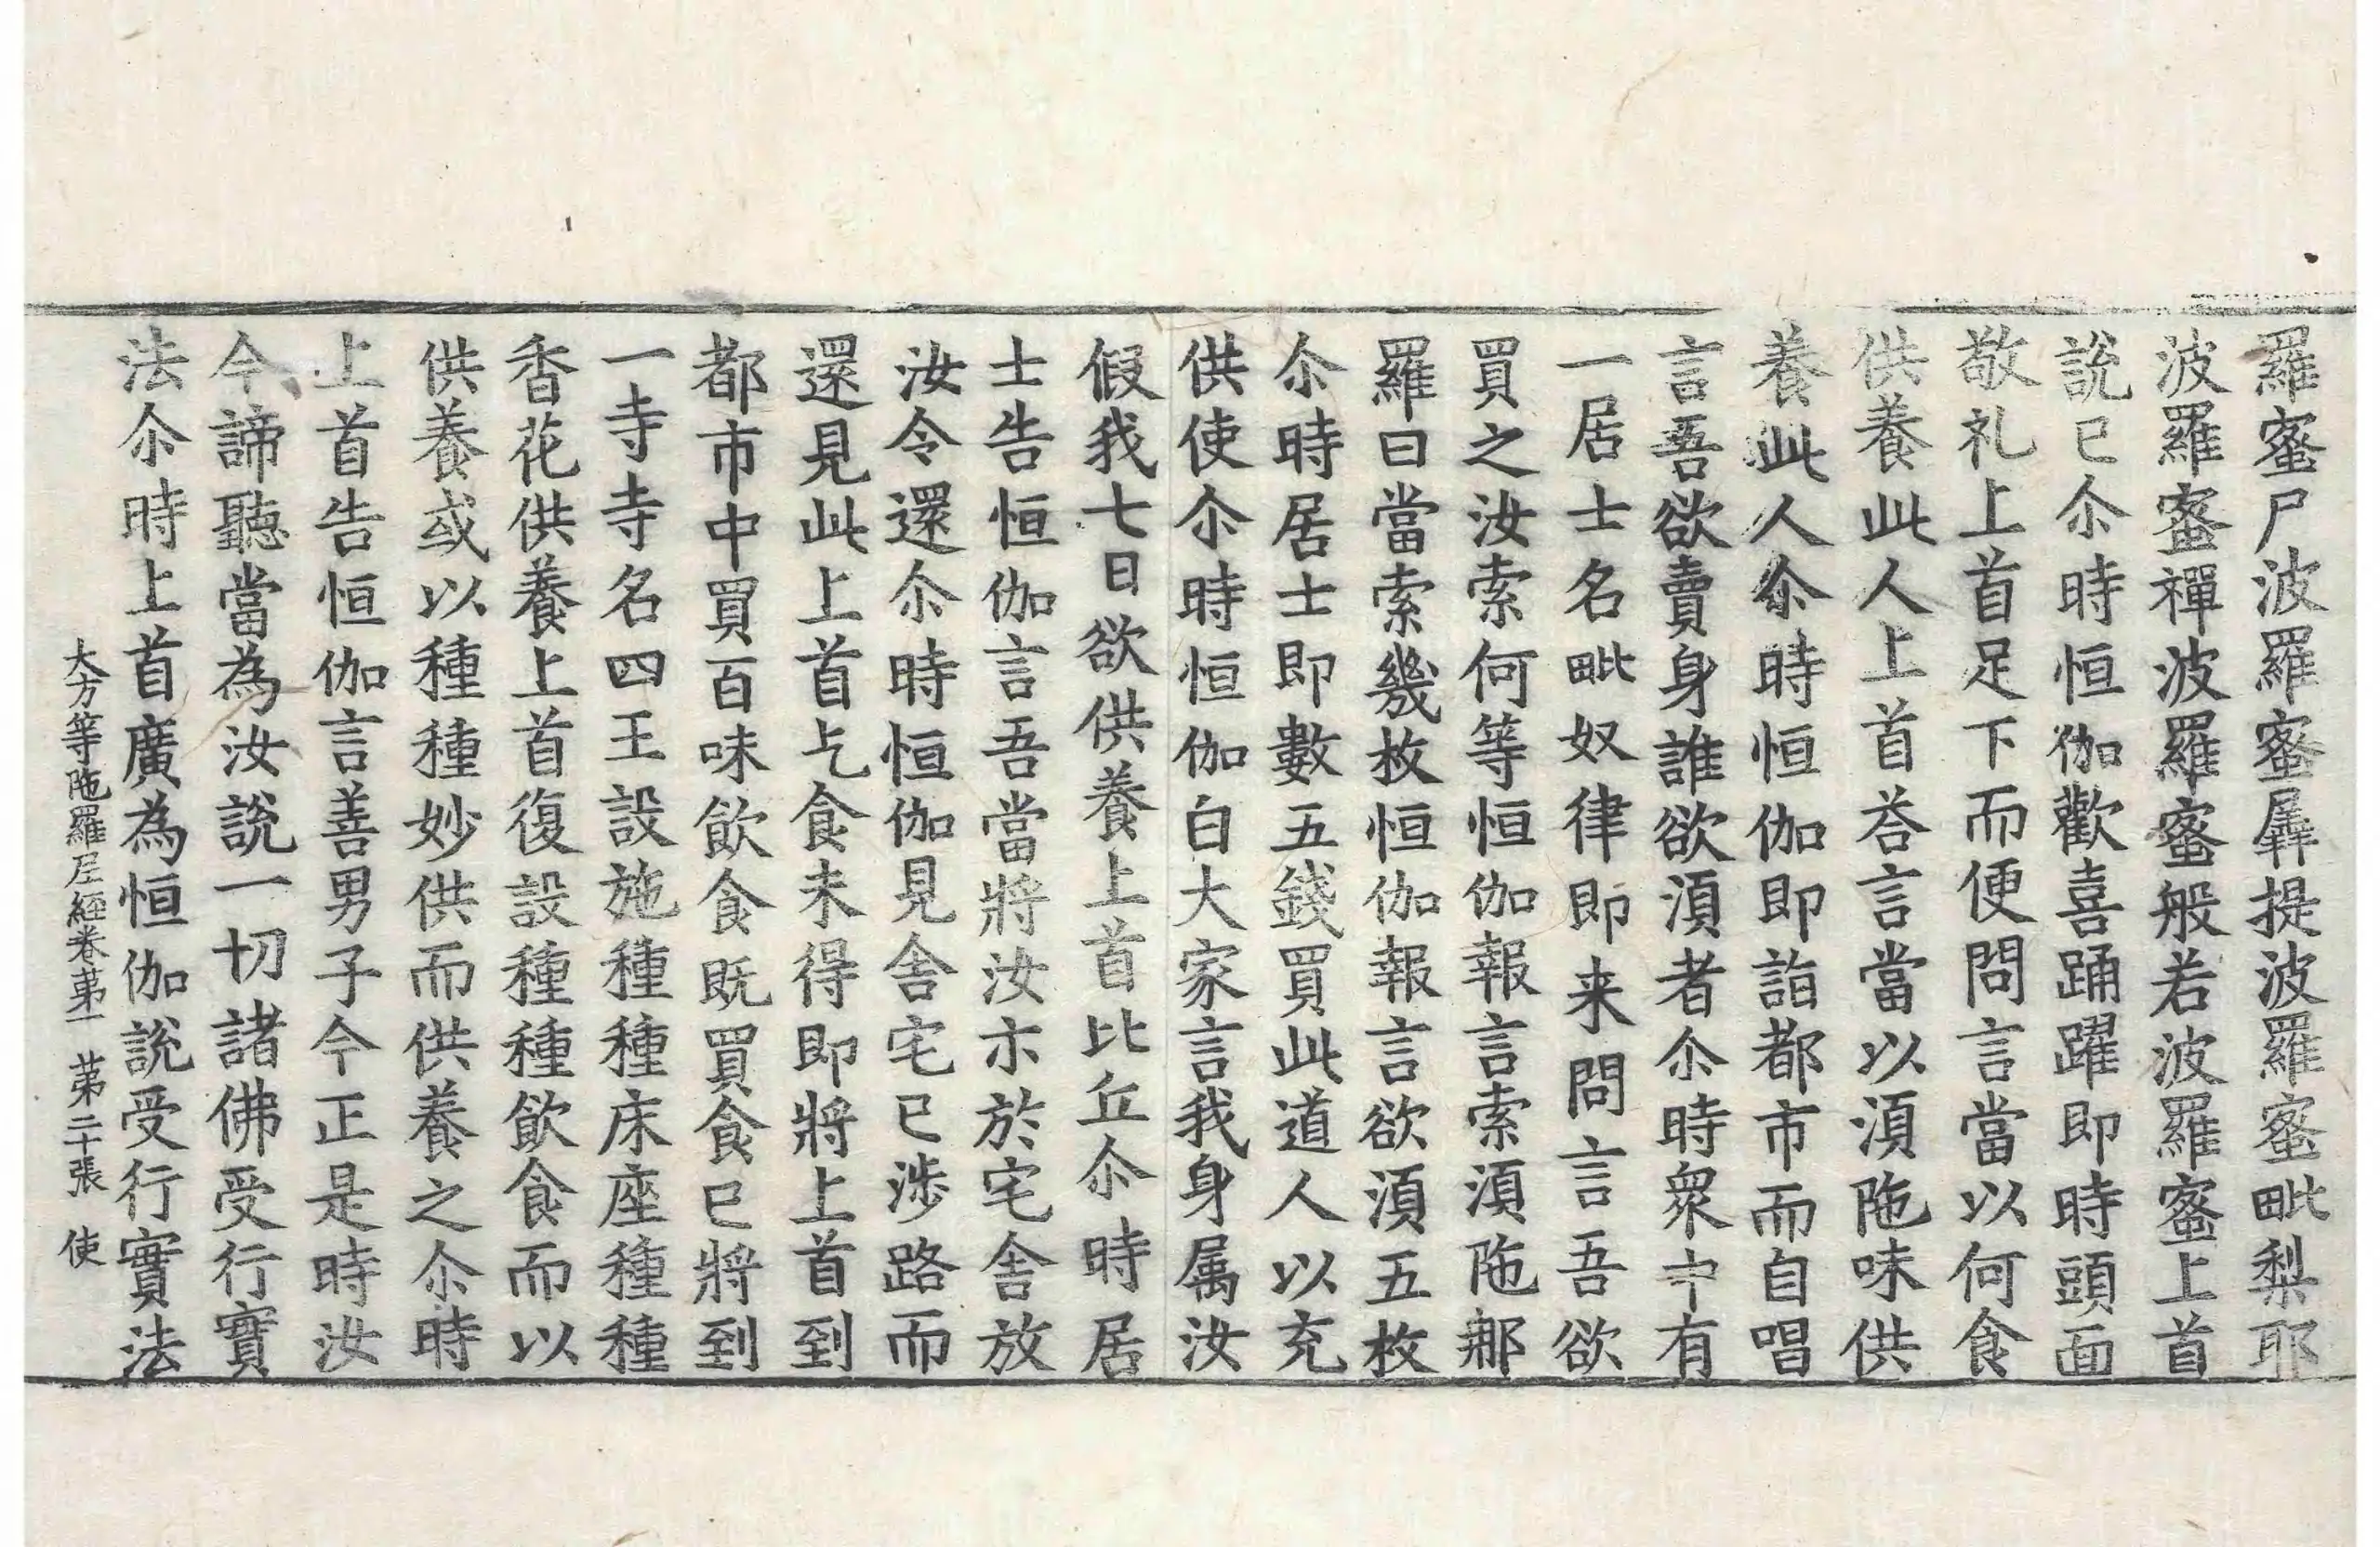 羅蜜尸波羅蜜羼提波羅蜜毗梨耶
波羅蜜禪波羅蜜般若波羅蜜上首
說已尒時恒伽歡喜踊躍即時頭面
敬礼上首足下而便問言當以何食
供養此人上首荅言當以湏陁味供
養此人尒時恒伽即詣都市而自唱
言吾欲賣身誰欲湏者尒時衆中有
一居士名毗奴律即来問言吾欲
買之汝索何等恒伽報言索湏陁那
羅曰當索幾枚恒伽報言欲湏五枚
尒時居士即數五錢買此道人以充
供使尒時恒伽白大家言我身属汝
假我七日欲供養上首比丘尒時居
士告恒伽言吾當將汝示於宅舍放
汝令還尒時恒伽見舍宅已涉路而
還見此上首乞食未得即將上首到
都市中買百味飲食既買食已將到
一寺寺名四王設施種種床座種種
香花供養上首復設種種飲食而以
供養或以種種妙供而供養之尒時
上首告恒伽言善男子今正是時汝
今諦聽當為汝說一切諸佛受行實
法尒時上首廣為恒伽說受行實法
大方等陁羅尼經卷苐一　苐二十張　使